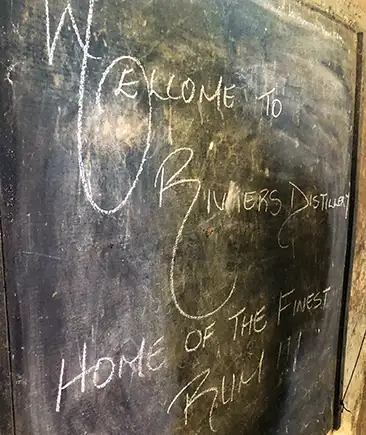 Welcome to
Rivers Distillery
Home of the Finest
Rum !!!